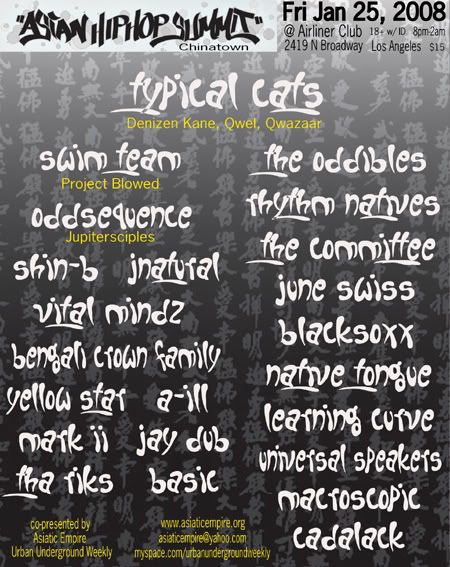 "ASIAN HIP HOP SUMMIT"
Chinatown
Fri Jan 25, 2008
@ Airliner Club 18+ w/ ID 8pm-2am
2419 N Broadway Los Angeles $15
typical cats
Denizen Kane, Qwel, Qwazaar
swim team
Project Blowed
oddsequence
Jupitersciples
shin-b jnatural
vital mindz
bengali crown family
yellow star a-ill
mark ii jay dub
tha riks basic
the oddibles
rhythm natives
the committee
june swiss
blacksoxx
native tongue
learning curve
universal speakers
macroscopic
cadalack
co-presented by
Asiatic Empire
Urban Underground Weekly
www.asiaticempire.org
asiaticempire@yahoo.com
myspace.com/urbanundergroundweekly